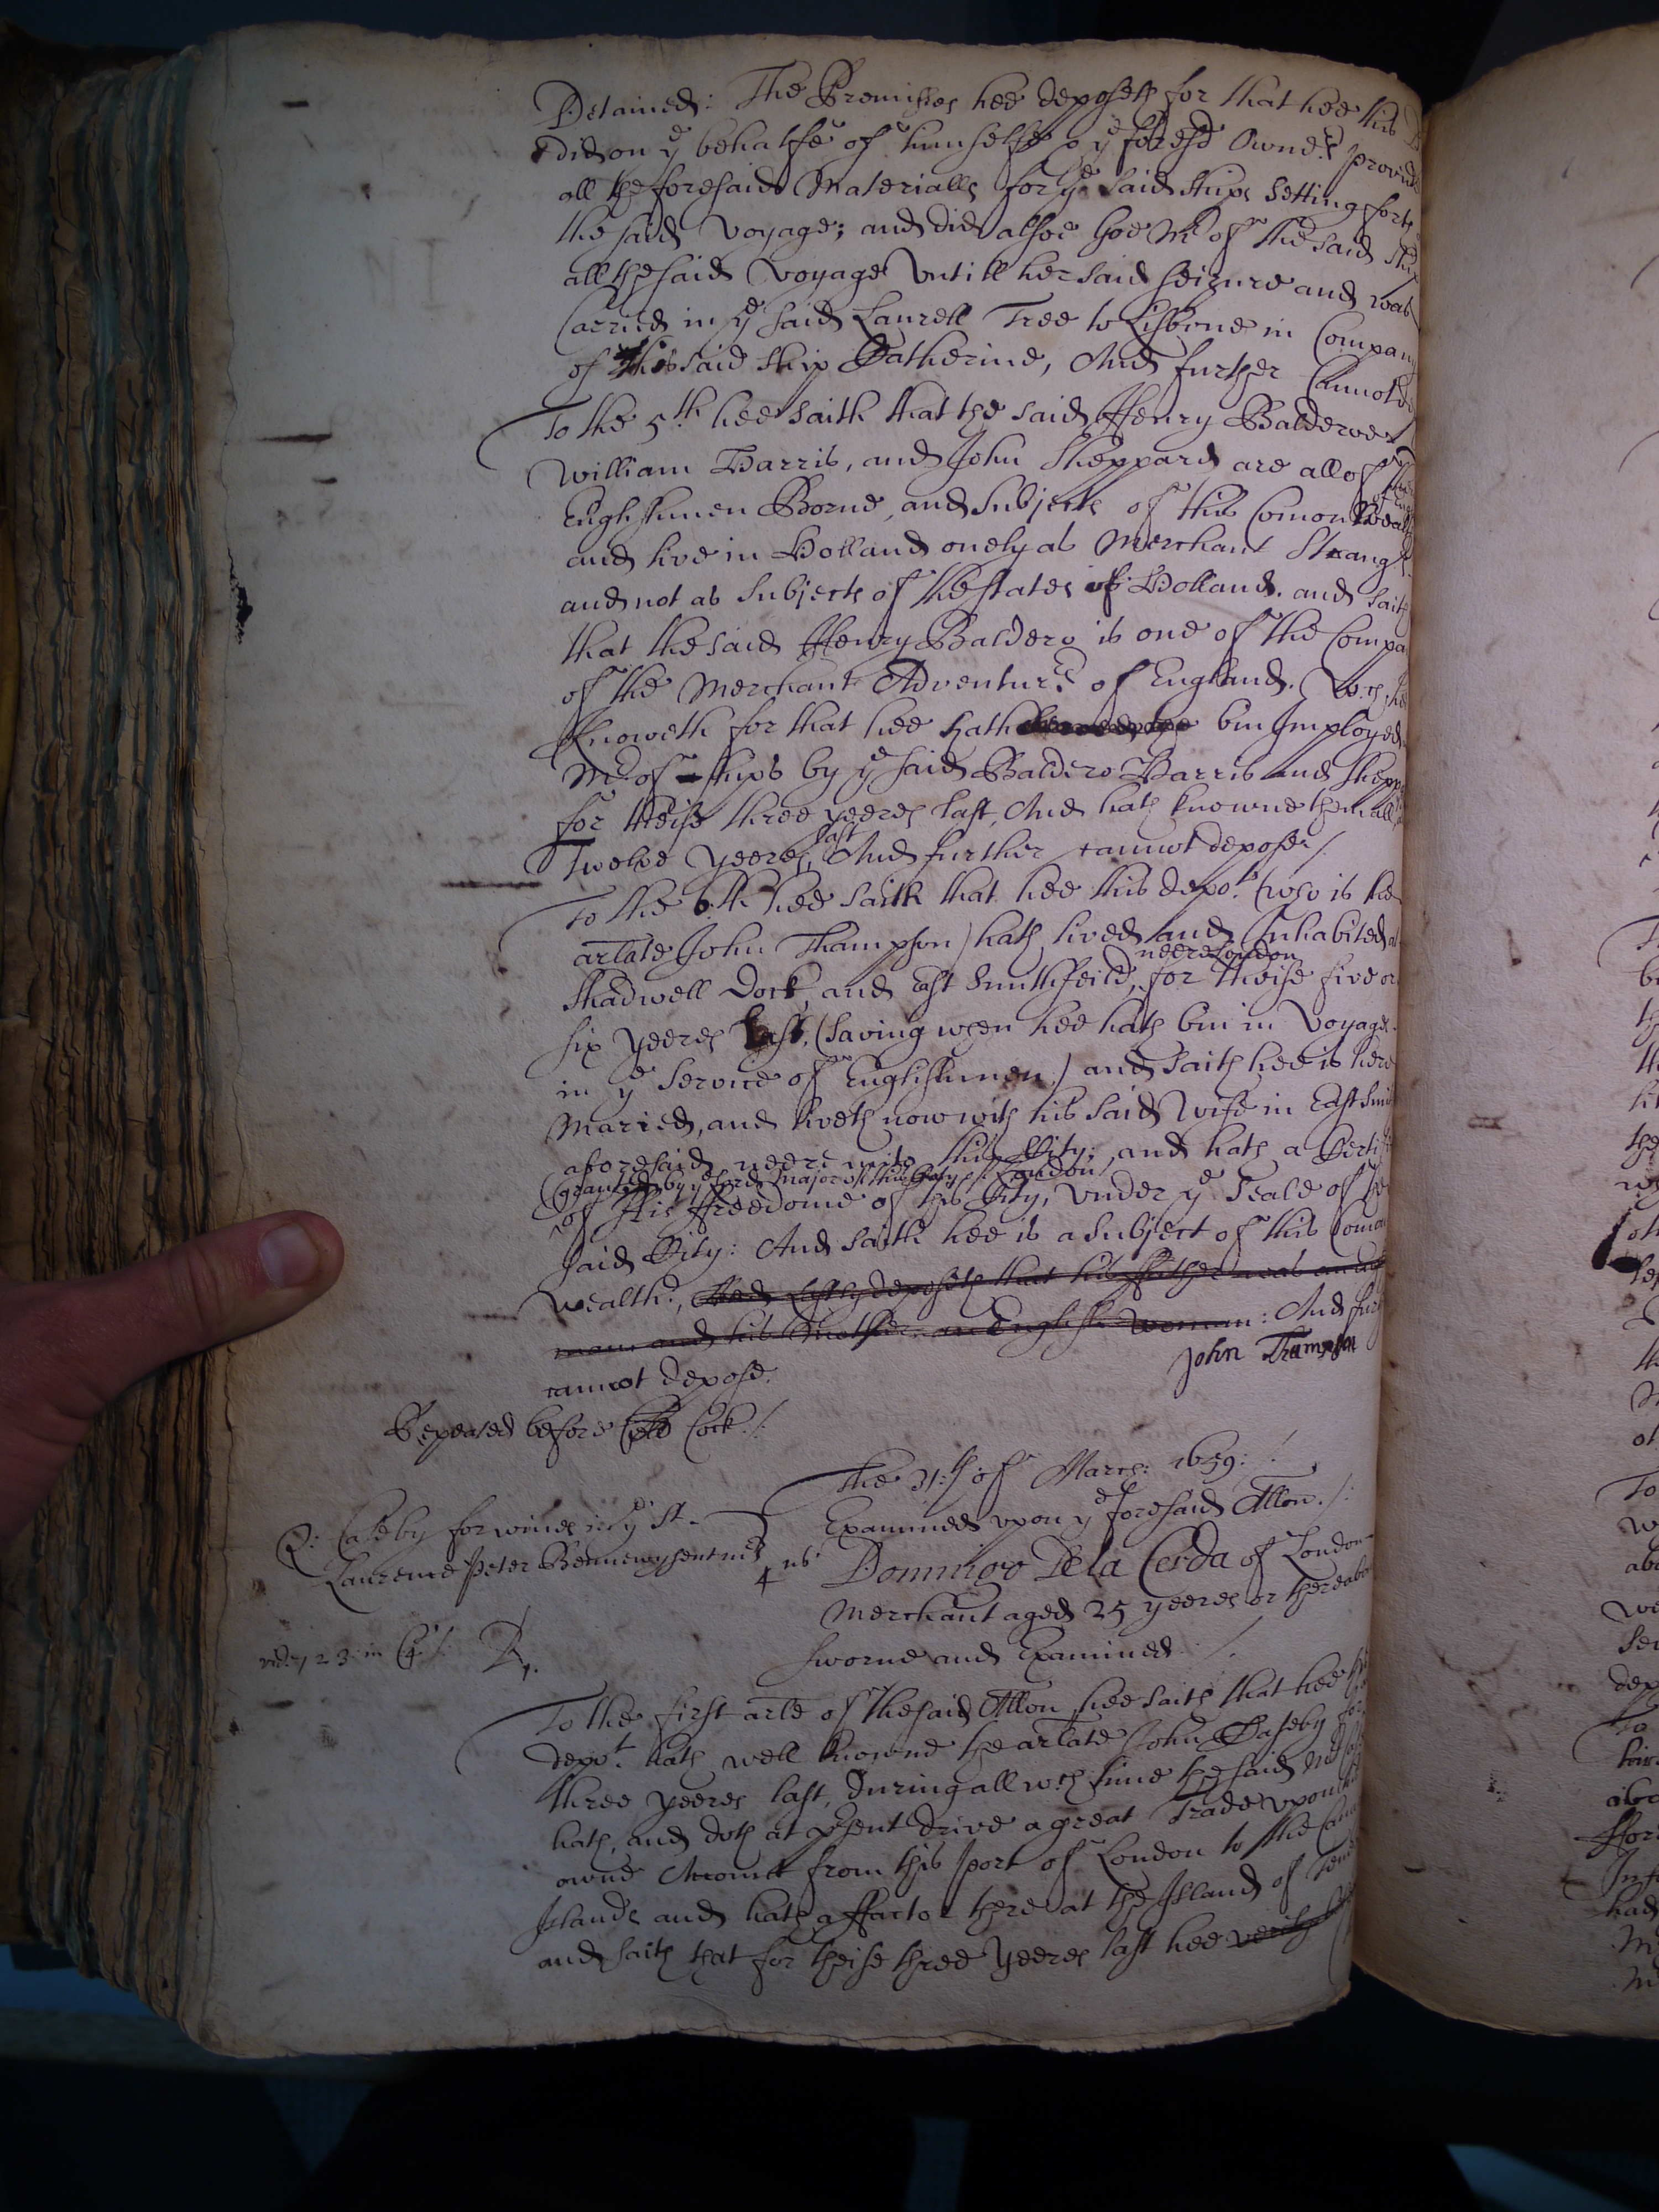 Detained: The Premisses hee deposeth for that hee this
did on ye behalfe of himselfe & ye foresd Owners provide
all the foresaid Materialls for ye said ships setting forth
the said voyage; and did alsoe goe Mr of the said ship
all the said voyage untill her said seizure and was
Carried in ye said Laurell Tree to Lisbone in Company
of this said ship Catherine, And further Cannot
To the 5th hee saith that the said Henry Balderoe
William Harris, and John Sheppard are all of them
Englishmen Borne, and subjects of this Comonweal
and live in Holland onely as Merchant Strangrs
and not as subjects of the states of Holland. and saith
that the said Henry Baldero is one of the Compa
of the Merchant Adventurrs of England. Wch hee
knoweth for that hee hath bin Imployed
Mr of ships by ye said Baldero Harris and Shepp
for theise three yeeres last, And hath knowne them all
Twelve yeeres last And further cannot depose/.
To the 6th hee saith that hee this depot (who is the
arlate John Thampson) hath lived and Inhabited at
Shadwell Dock, and East Smithfeild, neere London for theise five or
six yeeres last, (saving when hee hath bin in voyages
in ye service of Englishmen) and saith hee is here
Maried, and liveth now with his said Wife in East Smi
aforesaid neere unto this City; and hath a Certi
(granted by ye Lord Major of this City of London)
of his ffreedome of this City, under ye Seale of the
said City: And saith hee is a subject of this Comon
wealth, And lastly deposeth that his ffather was an
man and his Mother an English woman: And fur
cannot depose.
John Thampson
Repeated before Cock./.
The 31:th of March: 1659:/
Examined upon ye foresaid Allon./.
Q: Caseby for wines in ye St
Laurence Peter Bennewysent mr
4
Domingo De la Cerda of London
Merchant aged 25 yeeres or thereabo
sworne and Examined./
in
To the first arle of the said Allon hee saith that hee
depot hath well knowne the arlate John Caseby for
three yeeres last, during all wch time the said
hath, and doth at present drive a great Trade upon
owne Accountt from this port of London to the Can
Islands and hath a ffactor there at the Island of Tene
and saith that for theise three yeeres last hee